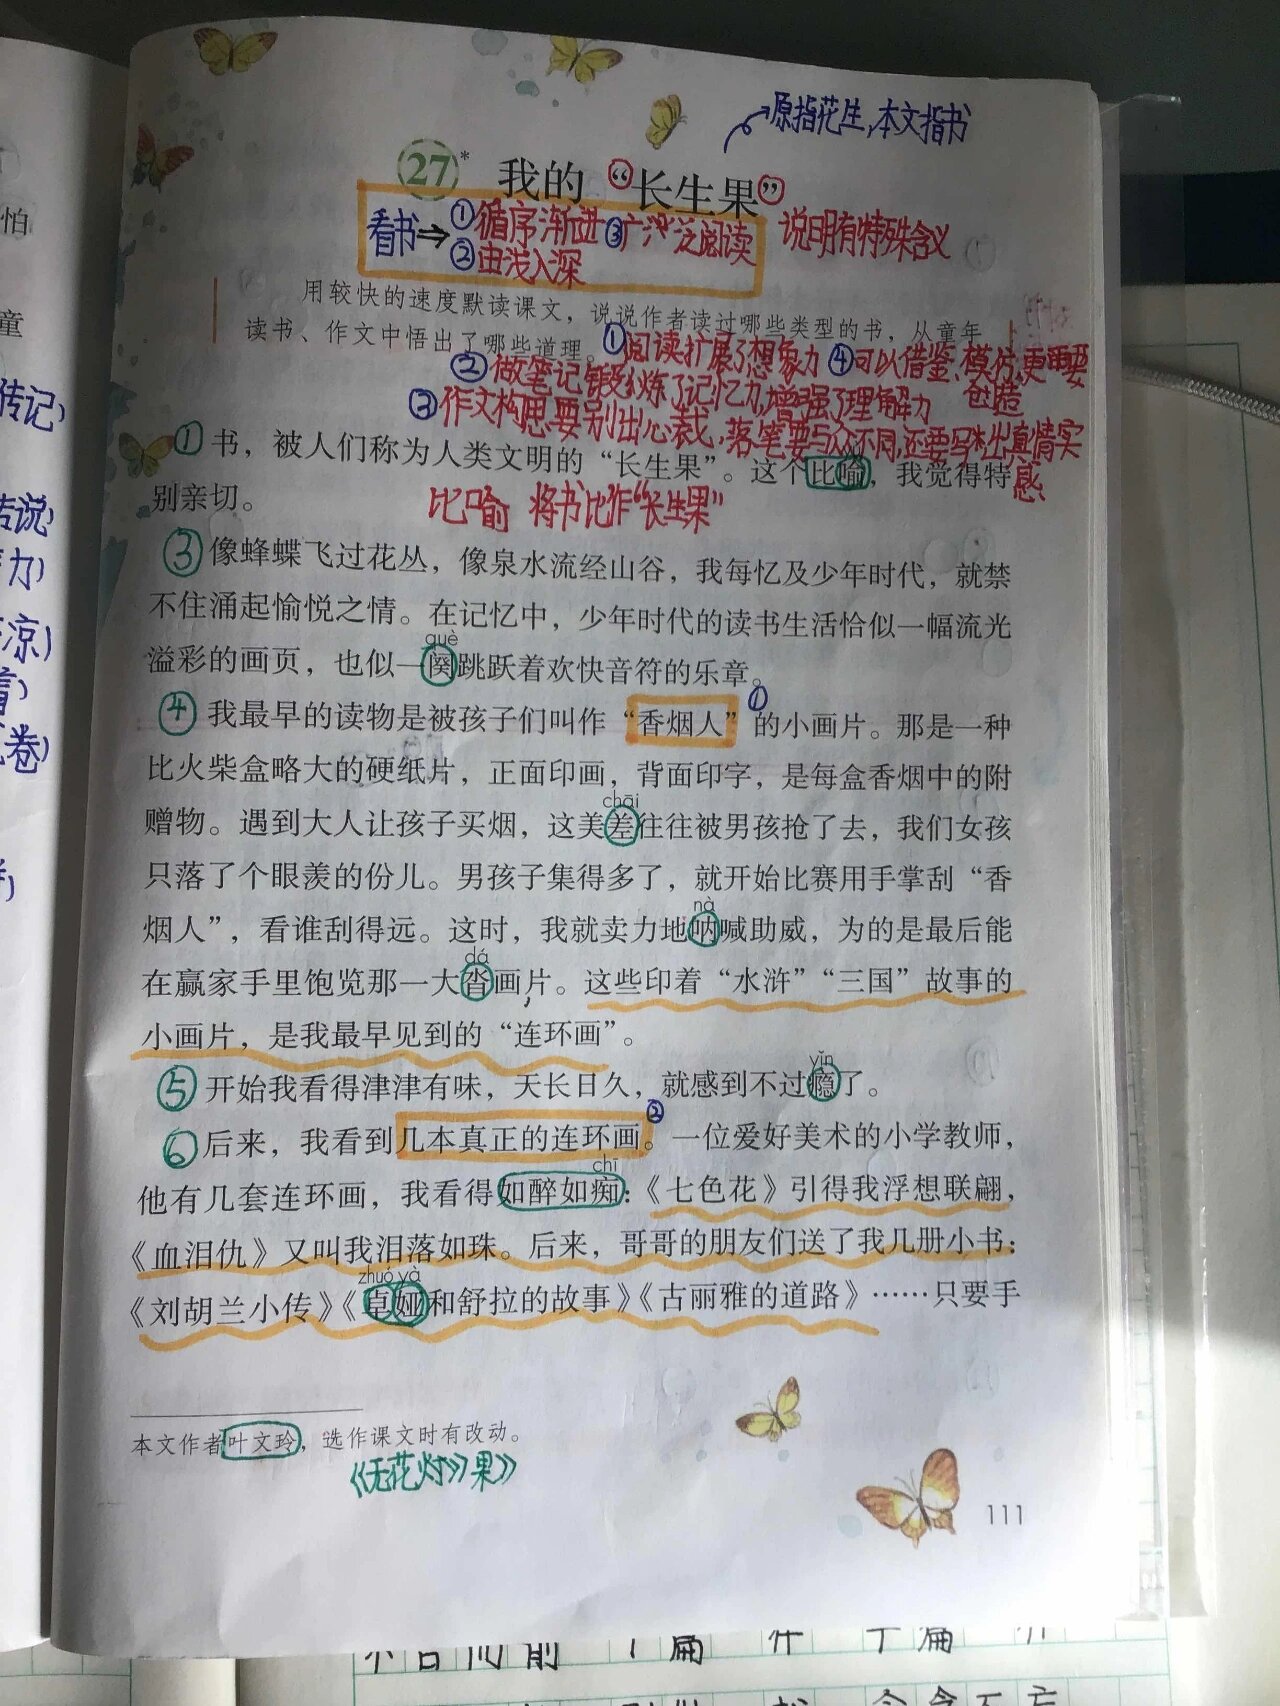 原指花生,本文指书
27* 我的“长生果”
看书⇒①循序渐进③广泛阅读 说明有特殊含义
②由浅入深
用较快的速度默读课文，说说作者读过哪些类型的书，从童年
读书、作文中悟出了哪些道理。
①阅读扩展了想象力 ④可以借鉴、模仿,更重要
②做笔记锻炼了记忆力,增强了理解力 创造
③作文构思要别出心裁,落笔要与众不同,还要写出真情实
感
①书，被人们称为人类文明的“长生果”。这个比喻，我觉得特
别亲切。
比喻 将书比作“长生果”
③像蜂蝶飞过花丛，像泉水流经山谷，我每忆及少年时代，就禁
不住涌起愉悦之情。在记忆中，少年时代的读书生活恰似一幅流光
què
溢彩的画页，也似一阕跳跃着欢快音符的乐章。
④我最早的读物是被孩子们叫作“香烟人”①的小画片。那是一种
比火柴盒略大的硬纸片，正面印画，背面印字，是每盒香烟中的附
chāi
赠物。遇到大人让孩子买烟，这美差往往被男孩抢了去，我们女孩
只落了个眼羡的份儿。男孩子集得多了，就开始比赛用手掌刮“香
nà
烟人”，看谁刮得远。这时，我就卖力地呐喊助威，为的是最后能
dá
在赢家手里饱览那一大沓画片。这些印着“水浒”“三国”故事的
小画片，是我最早见到的“连环画”。
yǐn
⑤开始我看得津津有味，天长日久，就感到不过瘾了。
⑥后来，我看到几本真正的连环画②。一位爱好美术的小学教师，
chī
他有几套连环画，我看得如醉如痴：《七色花》引得我浮想联翩，
《血泪仇》又叫我泪落如珠。后来，哥哥的朋友们送了我几册小书：
zhuó yà
《刘胡兰小传》《卓娅和舒拉的故事》《古丽雅的道路》……只要手
本文作者叶文玲，选作课文时有改动。
《无花果》
111
怕
童
传记)
传说)
力)
凉)
卷)